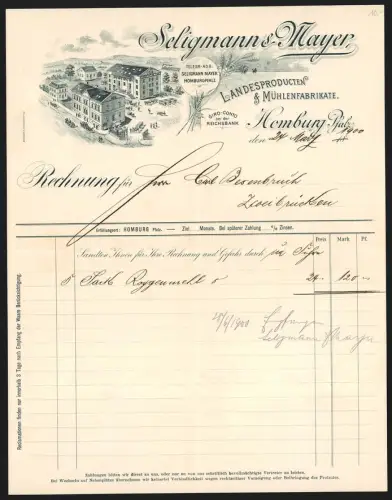 Seligmann & Mayer,
TELEGR.-ADR.
SELIGMANN MAYER
HOMBURGPFALZ.
LANDESPRODUCTEN
& MÜHLENFABRIKATE.
GIRO-CONTO
bei der
REICHSBANK
Homburg, Pfalz
den 24 März 1900
Rechnung für Herrn Carl Besenbruch
Zweibrücken
Erfüllungsort: HOMBURG Pfalz. — Ziel Monate. Bei späterer Zahlung % Zinsen.
Preis Mark Pf.
Sandten Ihnen für Ihre Rechnung und Gefahr durch
5 Sack Roggenmehl 0 24.- 120.-
Seligmann Mayer
Reclamationen finden nur innerhalb 8 Tage nach Empfang der Waare Berücksichtigung.
Zahlungen bitten wir direct an uns, oder nur an von uns schriftlich bevollmächtigte Vertreter zu leisten.
Bei Wechseln auf Nebenplätze übernehmen wir keinerlei Verbindlichkeit wegen rechtzeitiger Vorzeigung oder Beibringung des Protestes.